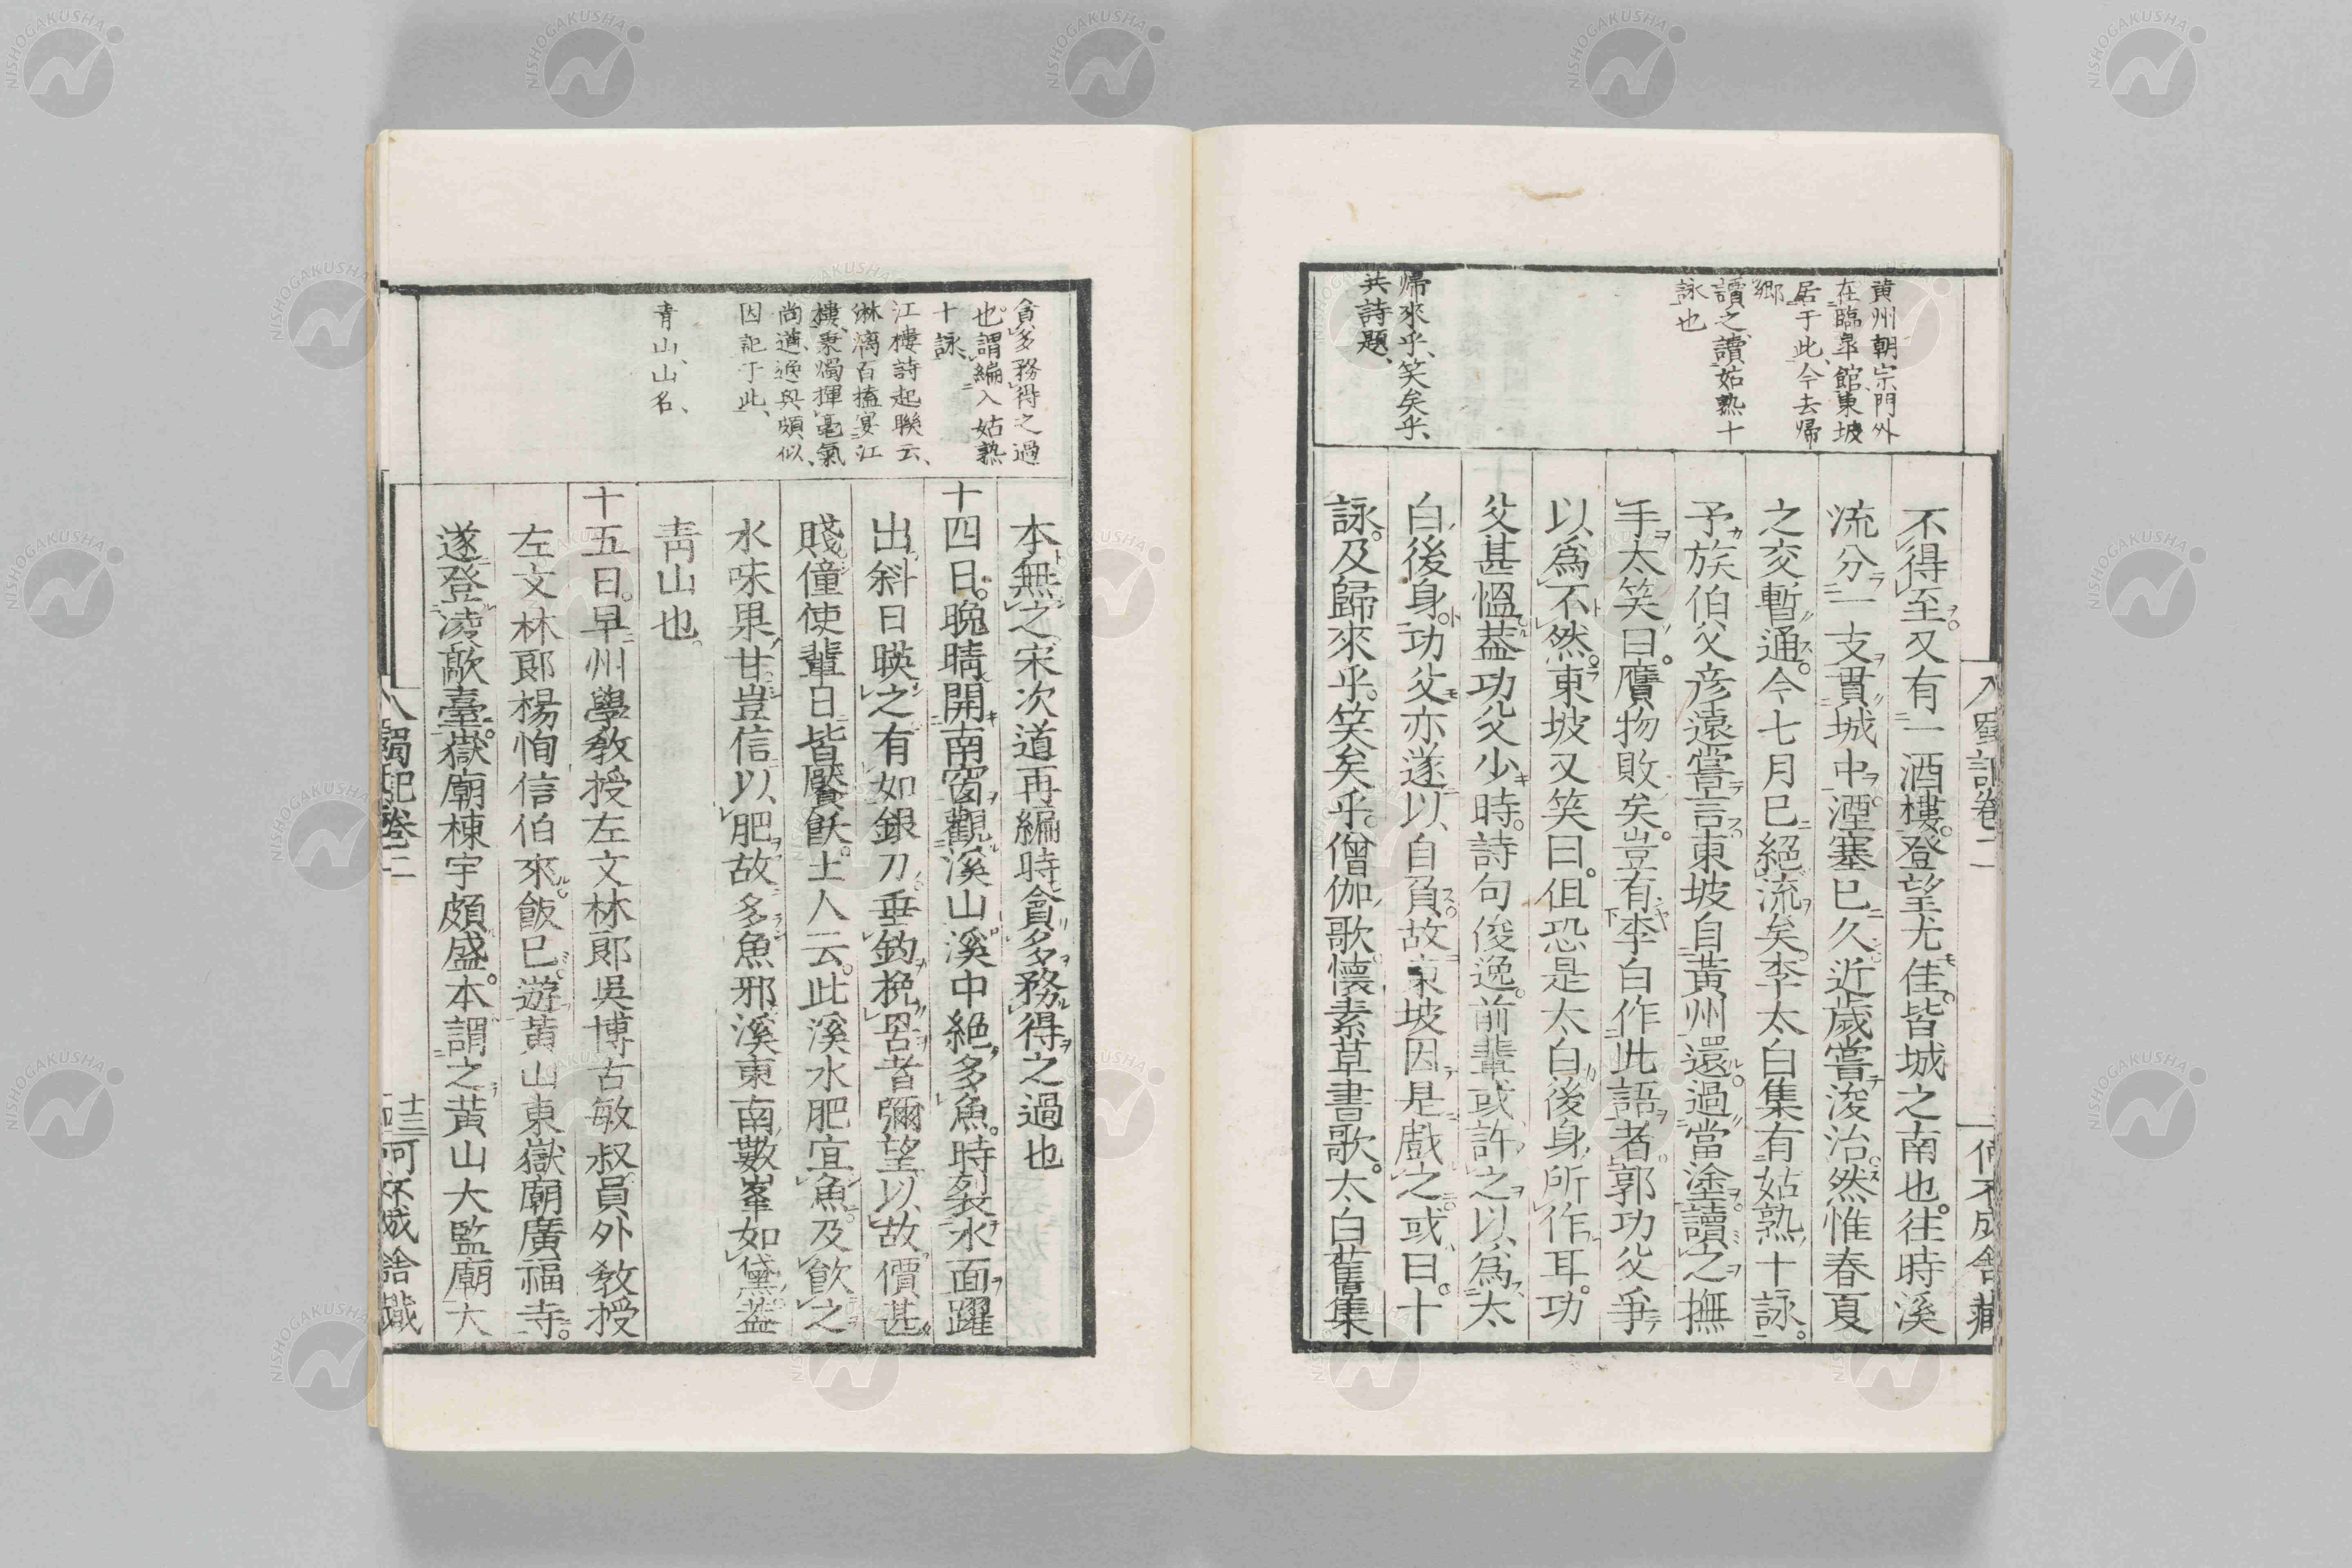 入蜀記卷二
何不成舍藏
黄州朝宗門外
在臨皐館東坡
居于此、今去歸
鄉
讀之、讀姑熟十
詠也
歸來乎、笑矣乎、
共詩題、
不得至。又有一酒樓。登望尤佳。皆城之南也。往時溪
流分一支貫城中。湮塞已久。近歲嘗浚治。然惟春夏
之交暫通。今七月已絕流矣。李太白集有姑熟十詠。
予族伯父彦遠嘗言東坡自黃州還過當塗。讀之撫
手大笑曰。贗物敗矣。豈有李白作此語者。郭功父爭
以爲不然。東坡又笑曰。但恐是太白後身所作耳。功
父甚愠。蓋功父少時。詩句俊逸。前輩或許之以爲太
白後身。功父亦遂以自負。故東坡因是戲之。或曰。十
詠。及歸來乎。笑矣乎。僧伽歌。懷素草書歌。太白舊集
貪多務得之過
也。謂編入姑熟
十詠、
江樓詩起聯云、
淋漓百榼宴江
樓、秉燭揮毫氣
尚遒、逈與頗似、
因記于此、
青山、山名、
本無之。宋次道再編時。貪多務得之過也
十四日。晚晴。開南窗觀溪山。溪中絕多魚。時裂水面躍
出。斜日暎之。有如銀刀。垂釣挽罟者彌望。以故價甚
賤。僮使輩日皆饜飫。土人云。此溪水肥宜魚。及飮之
水味果甘。豈信以肥故多魚邪。溪東南數峯如黛。蓋
靑山也。
十五日。早州學敎授左文林郞吳博古敏叔員外敎授
左文林郞楊恂信伯來。飯已。遊黃山東嶽廟廣福寺。
遂登淩歊臺。嶽廟棟宇頗盛。本謂之黃山大監廟大
入蜀記卷二
十三
何不成舍藏